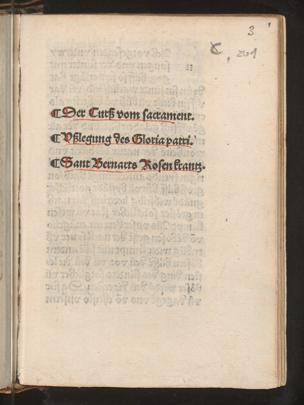 3
¶Der Curß vom sacrament.
¶Vßlegung des Gloria patri.
¶Sant Bernarts Rosenkrantz.